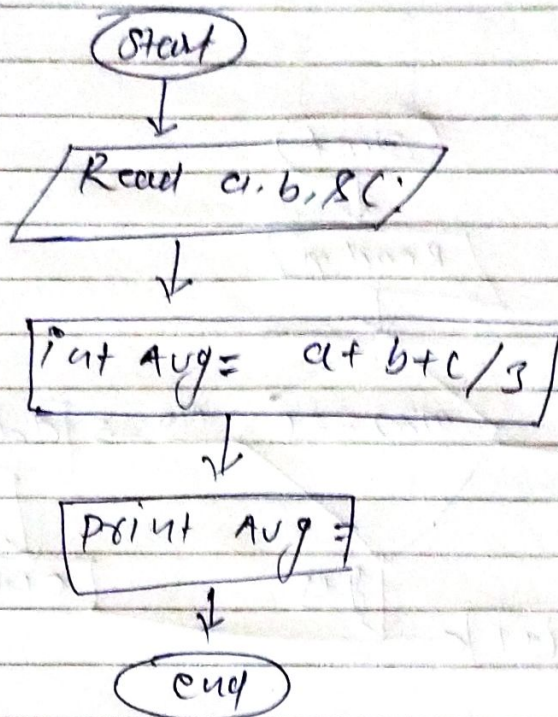 Start
Read a, b, & c;
int Avg = a + b + c / 3
print Avg =
end